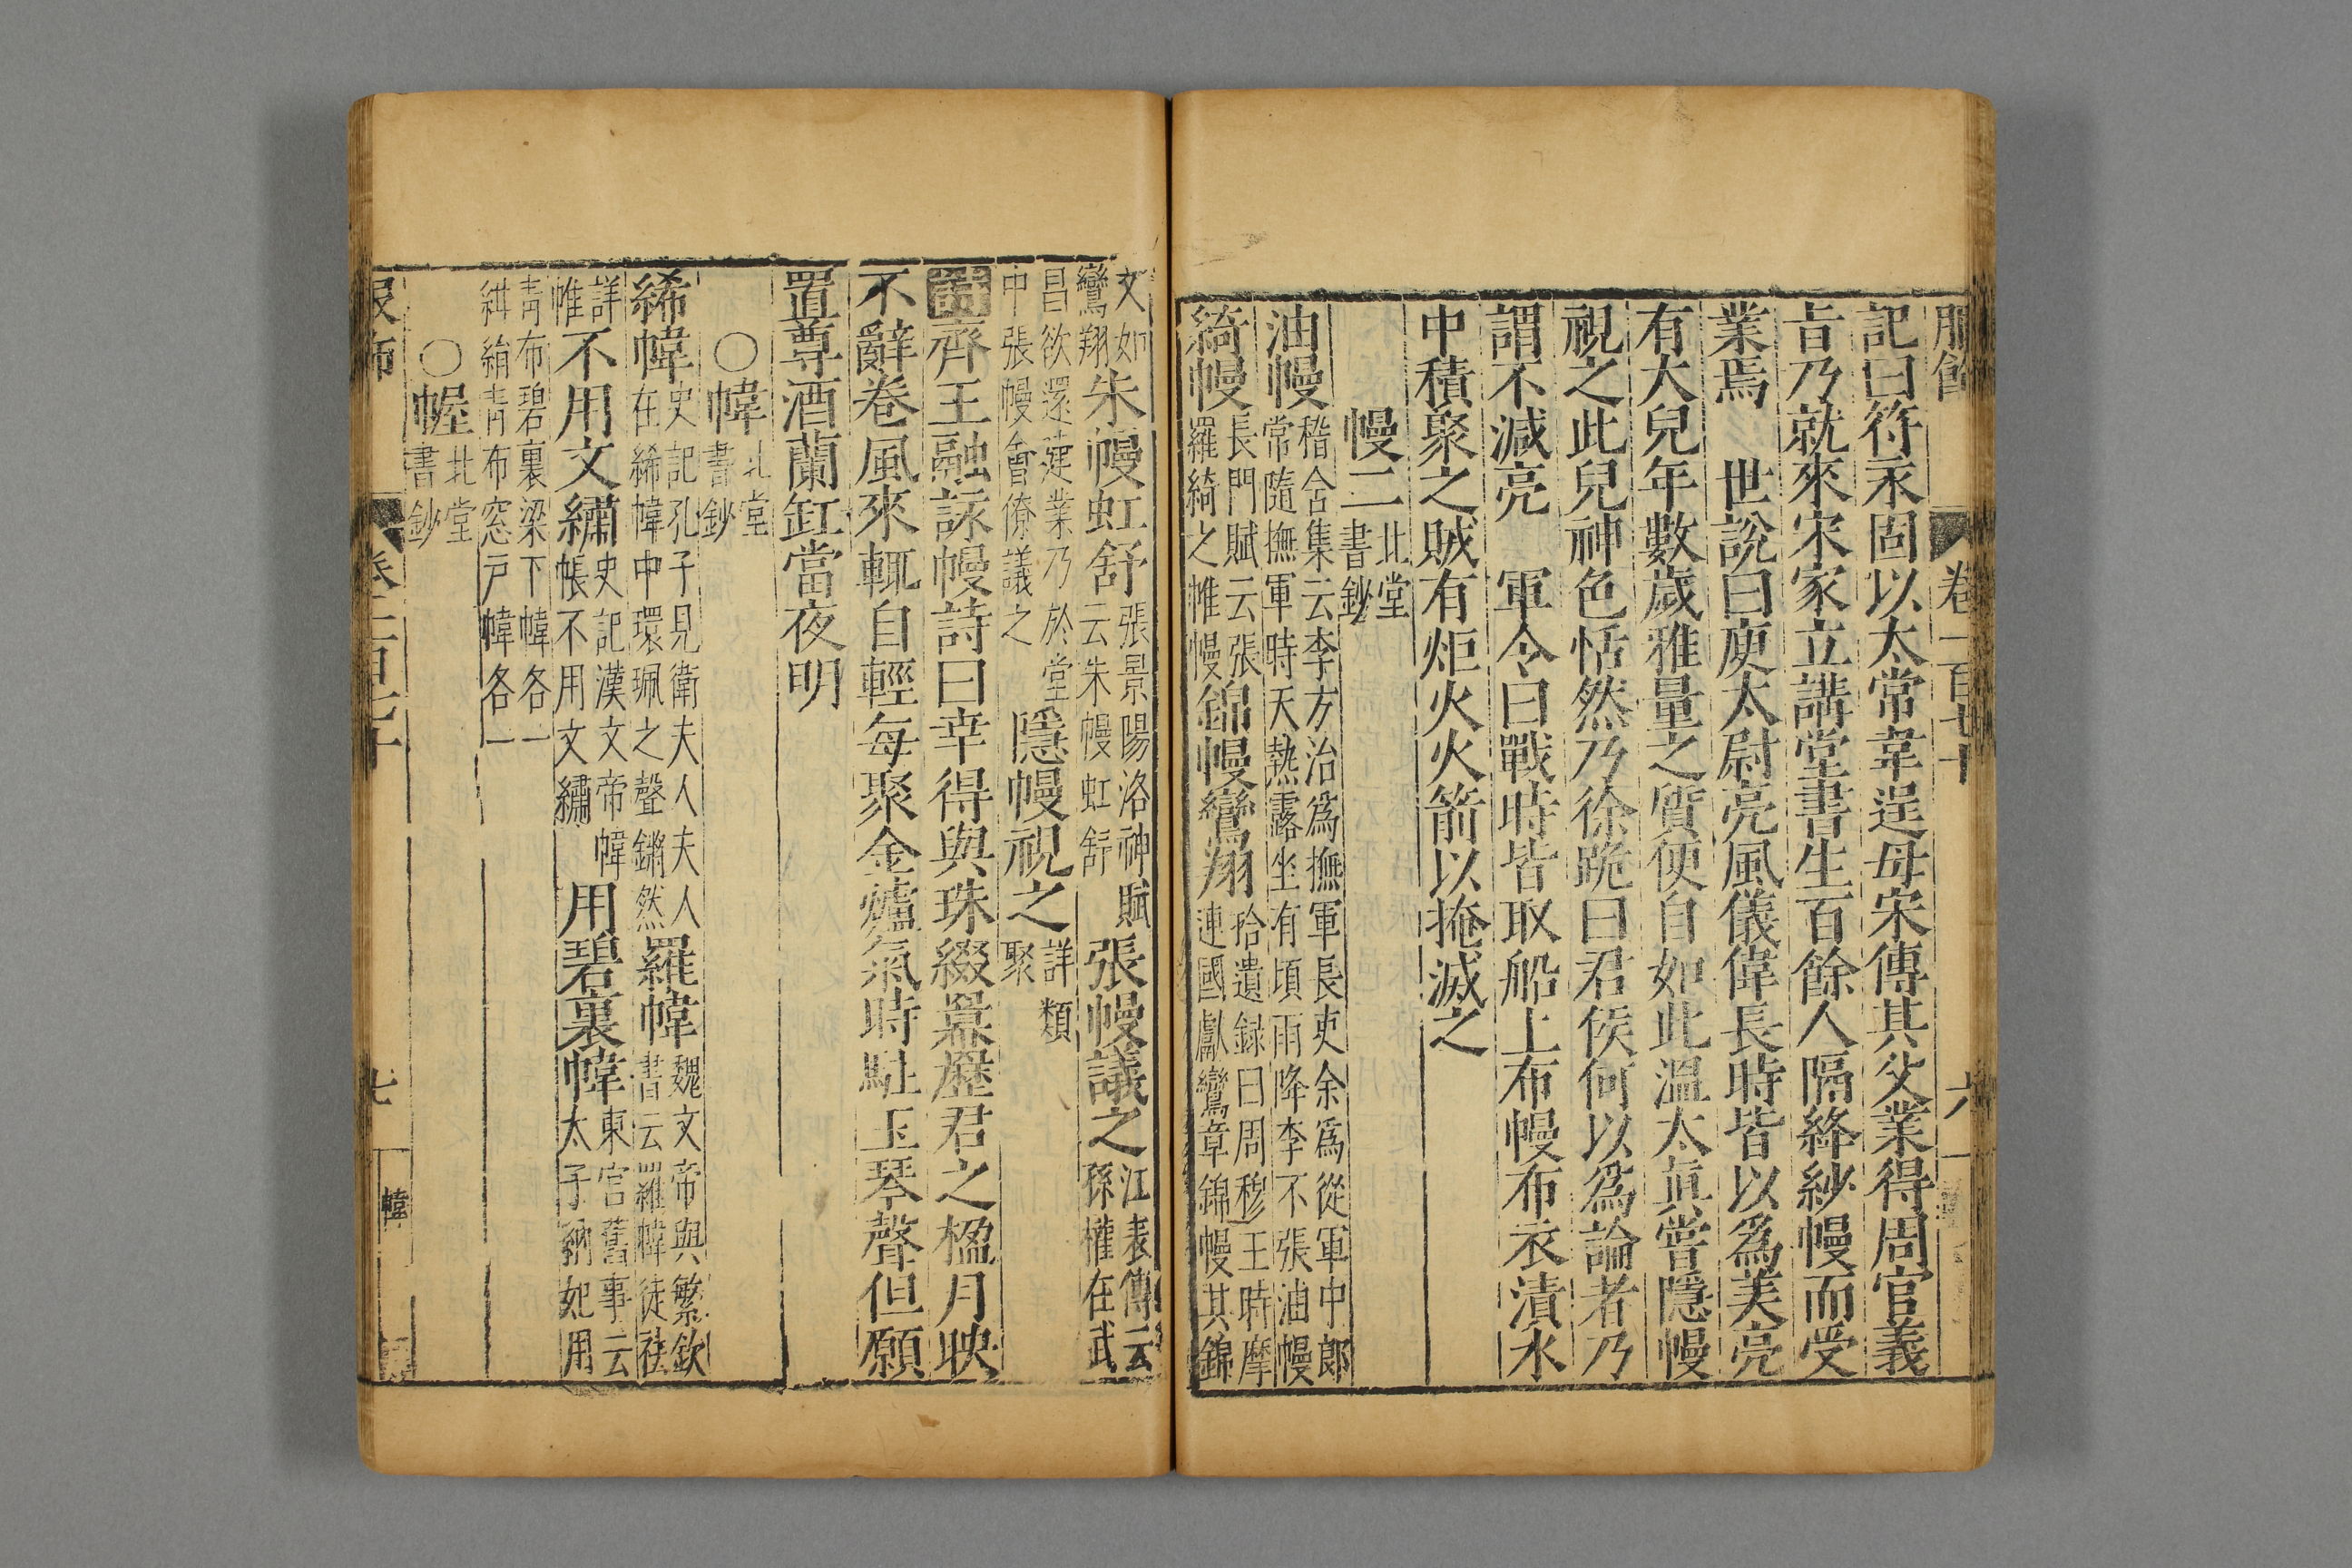 服飾 卷一百七十 六
記曰符永固以太常韋逞母宋傳其父業得周官義
㫖乃就來宋家立講堂書生百餘人隔絳紗幔而受
業焉 世說曰庾太尉亮風儀偉長時皆以爲美亮
有大兒年數歲雅量之質便自如此溫太真嘗隱幔
視之此兒神色恬然乃徐跪曰君侯何以爲論者乃
謂不減亮 軍令曰戰時皆取船上布幔布衣漬水
中積聚之賊有炬火火箭以掩滅之
幔二北堂書鈔
油幔嵇含集云李方治爲撫軍長吏余爲從軍中郎常隨撫軍時天熱露坐有頃雨降李不張油幔
綺幔長門賦云張羅綺之帷幔錦幔鸞翔拾遺録曰周穆王時摩連國獻鸞章錦幔其錦
文如鸞翔朱幔虹舒張景陽洛神賦云朱幔虹舒張幔議之江表傳云孫權在武
昌欲還建業乃於堂中張幔會僚議之隱幔視之詳類聚
詩齊王融詠幔詩曰幸得與珠綴羃歷君之楹月映
不辭卷風來輒自輕每聚金爐氣時駐玉琴聲但願
置尊酒蘭缸當夜明
○幃北堂書鈔
絺幃史記孔子見衛夫人夫人在絺幃中環珮之聲鏘然羅幃魏文帝與繁欽書云羅幃徒袪
詳帷不用文繡史記漢文帝幃帳不用文繡用碧裏幃東宮舊事云太子納妃用
青布碧裏梁下幃各一絓絹青布窓戸幃各一
○幄北堂書鈔
服飾 卷一百七十 七 幃